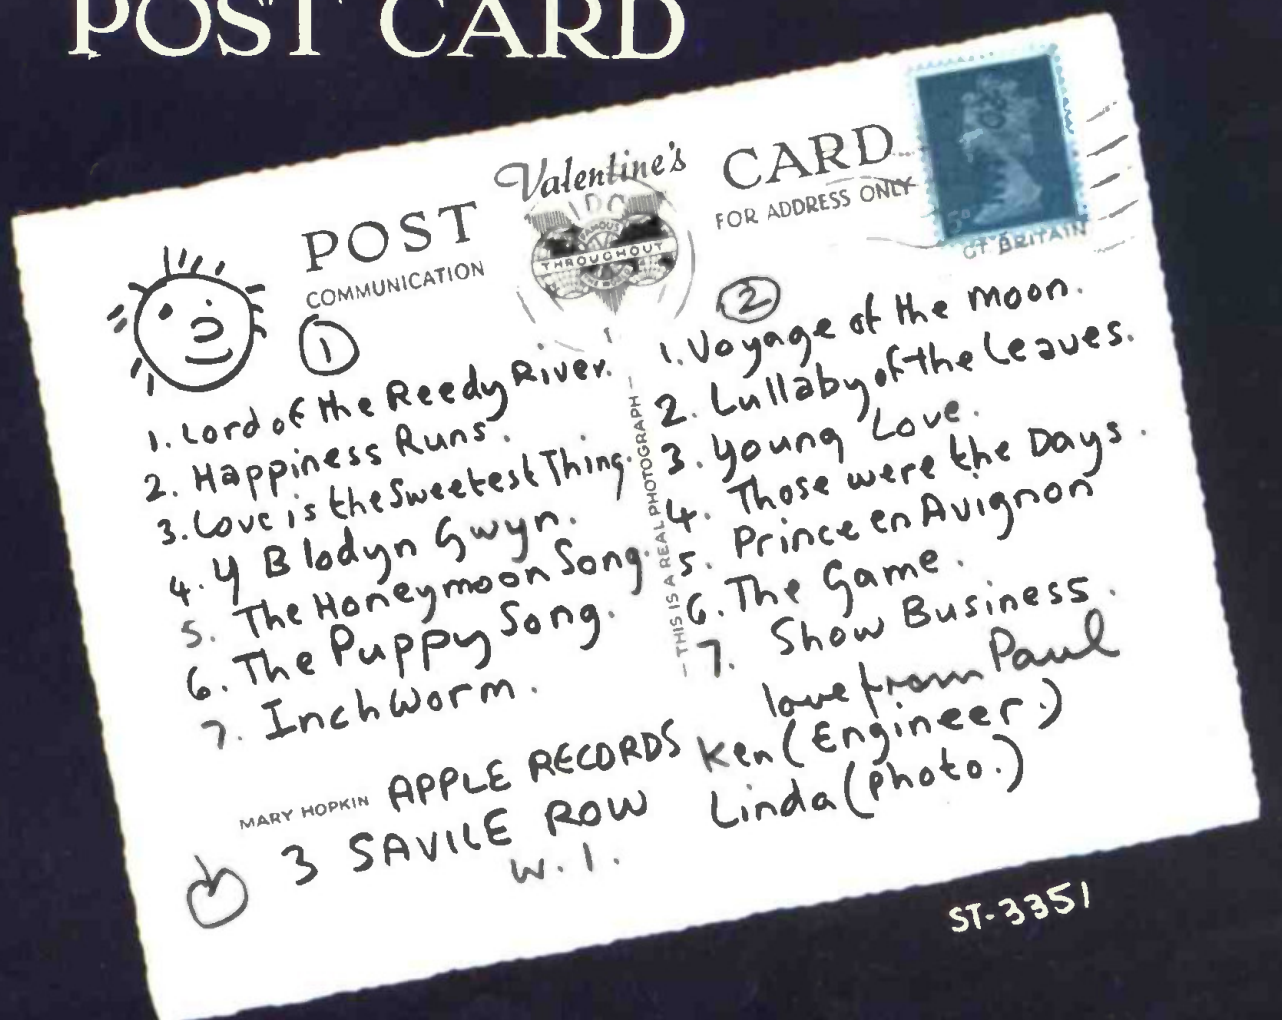 POST CARD
POST
COMMUNICATION
Valentine's
CARD
FOR ADDRESS ONLY
FAMOUS
THROUGHOUT
5D
GT BRITAIN
1
1. Lord of the Reedy River.
2. Happiness Runs.
3. Love is the Sweetest Thing.
4. Y Blodyn Gwyn.
5. The Honeymoon Song.
6. The Puppy Song.
7. InchWorm.
— THIS IS A REAL PHOTOGRAPH —
2
1. Voyage of the Moon.
2. Lullaby of the Leaves.
3. Young Love.
4. Those were the Days.
5. Prince en Avignon
6. The Game.
7. Show Business.
love from Paul
Ken (Engineer.)
Linda (Photo.)
MARY HOPKIN APPLE RECORDS
3 SAVILE ROW
W.1.
ST-3351